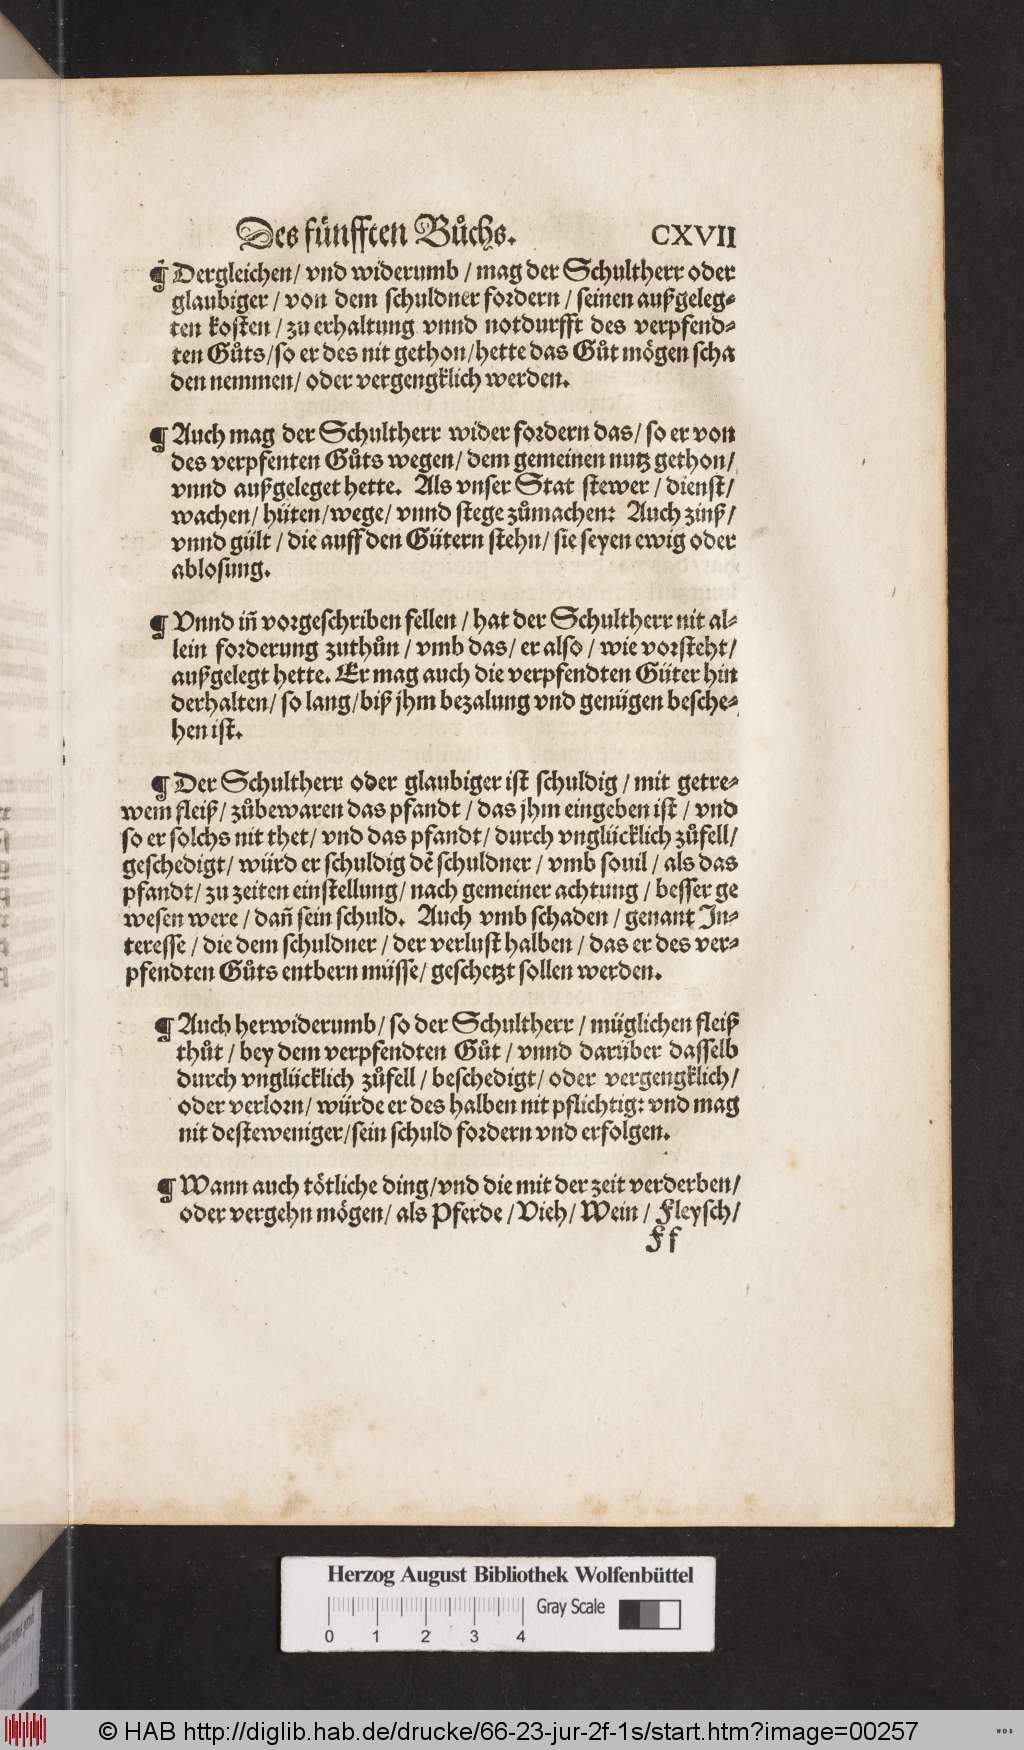 Des fünfften Bůchs. CXVII
¶ Dergleichen/ vnd widerumb / mag der Schultherr oder
glaubiger / von dem schuldner fordern / seinen außgeleg⸗
ten kosten / zu erhaltung vnnd notdurfft des verpfend⸗
ten Gůts/so er des nit gethon/hette das Gůt mögen scha
den nemmen/ oder vergengklich werden.
¶ Auch mag der Schultherr wider fordern das/ so er von
des verpfenten Gůts wegen/ dem gemeinen nutz gethon/
vnnd außgeleget hette. Als vnser Stat stewer / dienst/
wachen/ hüten/wege/ vnnd stege zůmachen: Auch zinß/
vnnd gült / die auff den Gütern stehn/ sie seyen ewig oder
ablosung.
¶ Vnnd in̄ vorgeschriben fellen / hat der Schultherr nit al⸗
lein forderung zuthůn / vmb das/ er also / wie vorsteht/
außgelegt hette. Er mag auch die verpfendten Güter hin
derhalten/ so lang/biß jhm bezalung vnd genügen besche⸗
hen ist.
¶ Der Schultherr oder glaubiger ist schuldig / mit getre⸗
wem fleiß/ zůbewaren das pfandt / das jhm eingeben ist / vnd
so er solchs nit thet/ vnd das pfandt/ durch vnglücklich zůfell/
geschedigt/ würd er schuldig dē schuldner / vmb souil / als das
pfandt/ zu zeiten einstellung/ nach gemeiner achtung / besser ge
wesen were / dan̄ sein schuld. Auch vmb schaden / genant In⸗
teresse / die dem schuldner / der verlust halben / das er des ver⸗
pfendten Gůts entbern müsse/ geschetzt sollen werden.
¶ Auch herwiderumb/ so der Schultherr / müglichen fleiß
thůt / bey dem verpfendten Gůt / vnnd darüber dasselb
durch vnglücklich zůfell / beschedigt/ oder vergengklich/
oder verlorn/ würde er des halben nit pflichtig: vnd mag
nit desteweniger/sein schuld fordern vnd erfolgen.
¶ Wann auch tötliche ding/vnd die mit der zeit verderben/
oder vergehn mögen/ als Pferde / Vieh/ Wein / Fleysch/
Ff
Herzog August Bibliothek Wolfenbüttel
Gray Scale
0 1 2 3 4
© HAB http://diglib.hab.de/drucke/66-23-jur-2f-1s/start.htm?image=00257